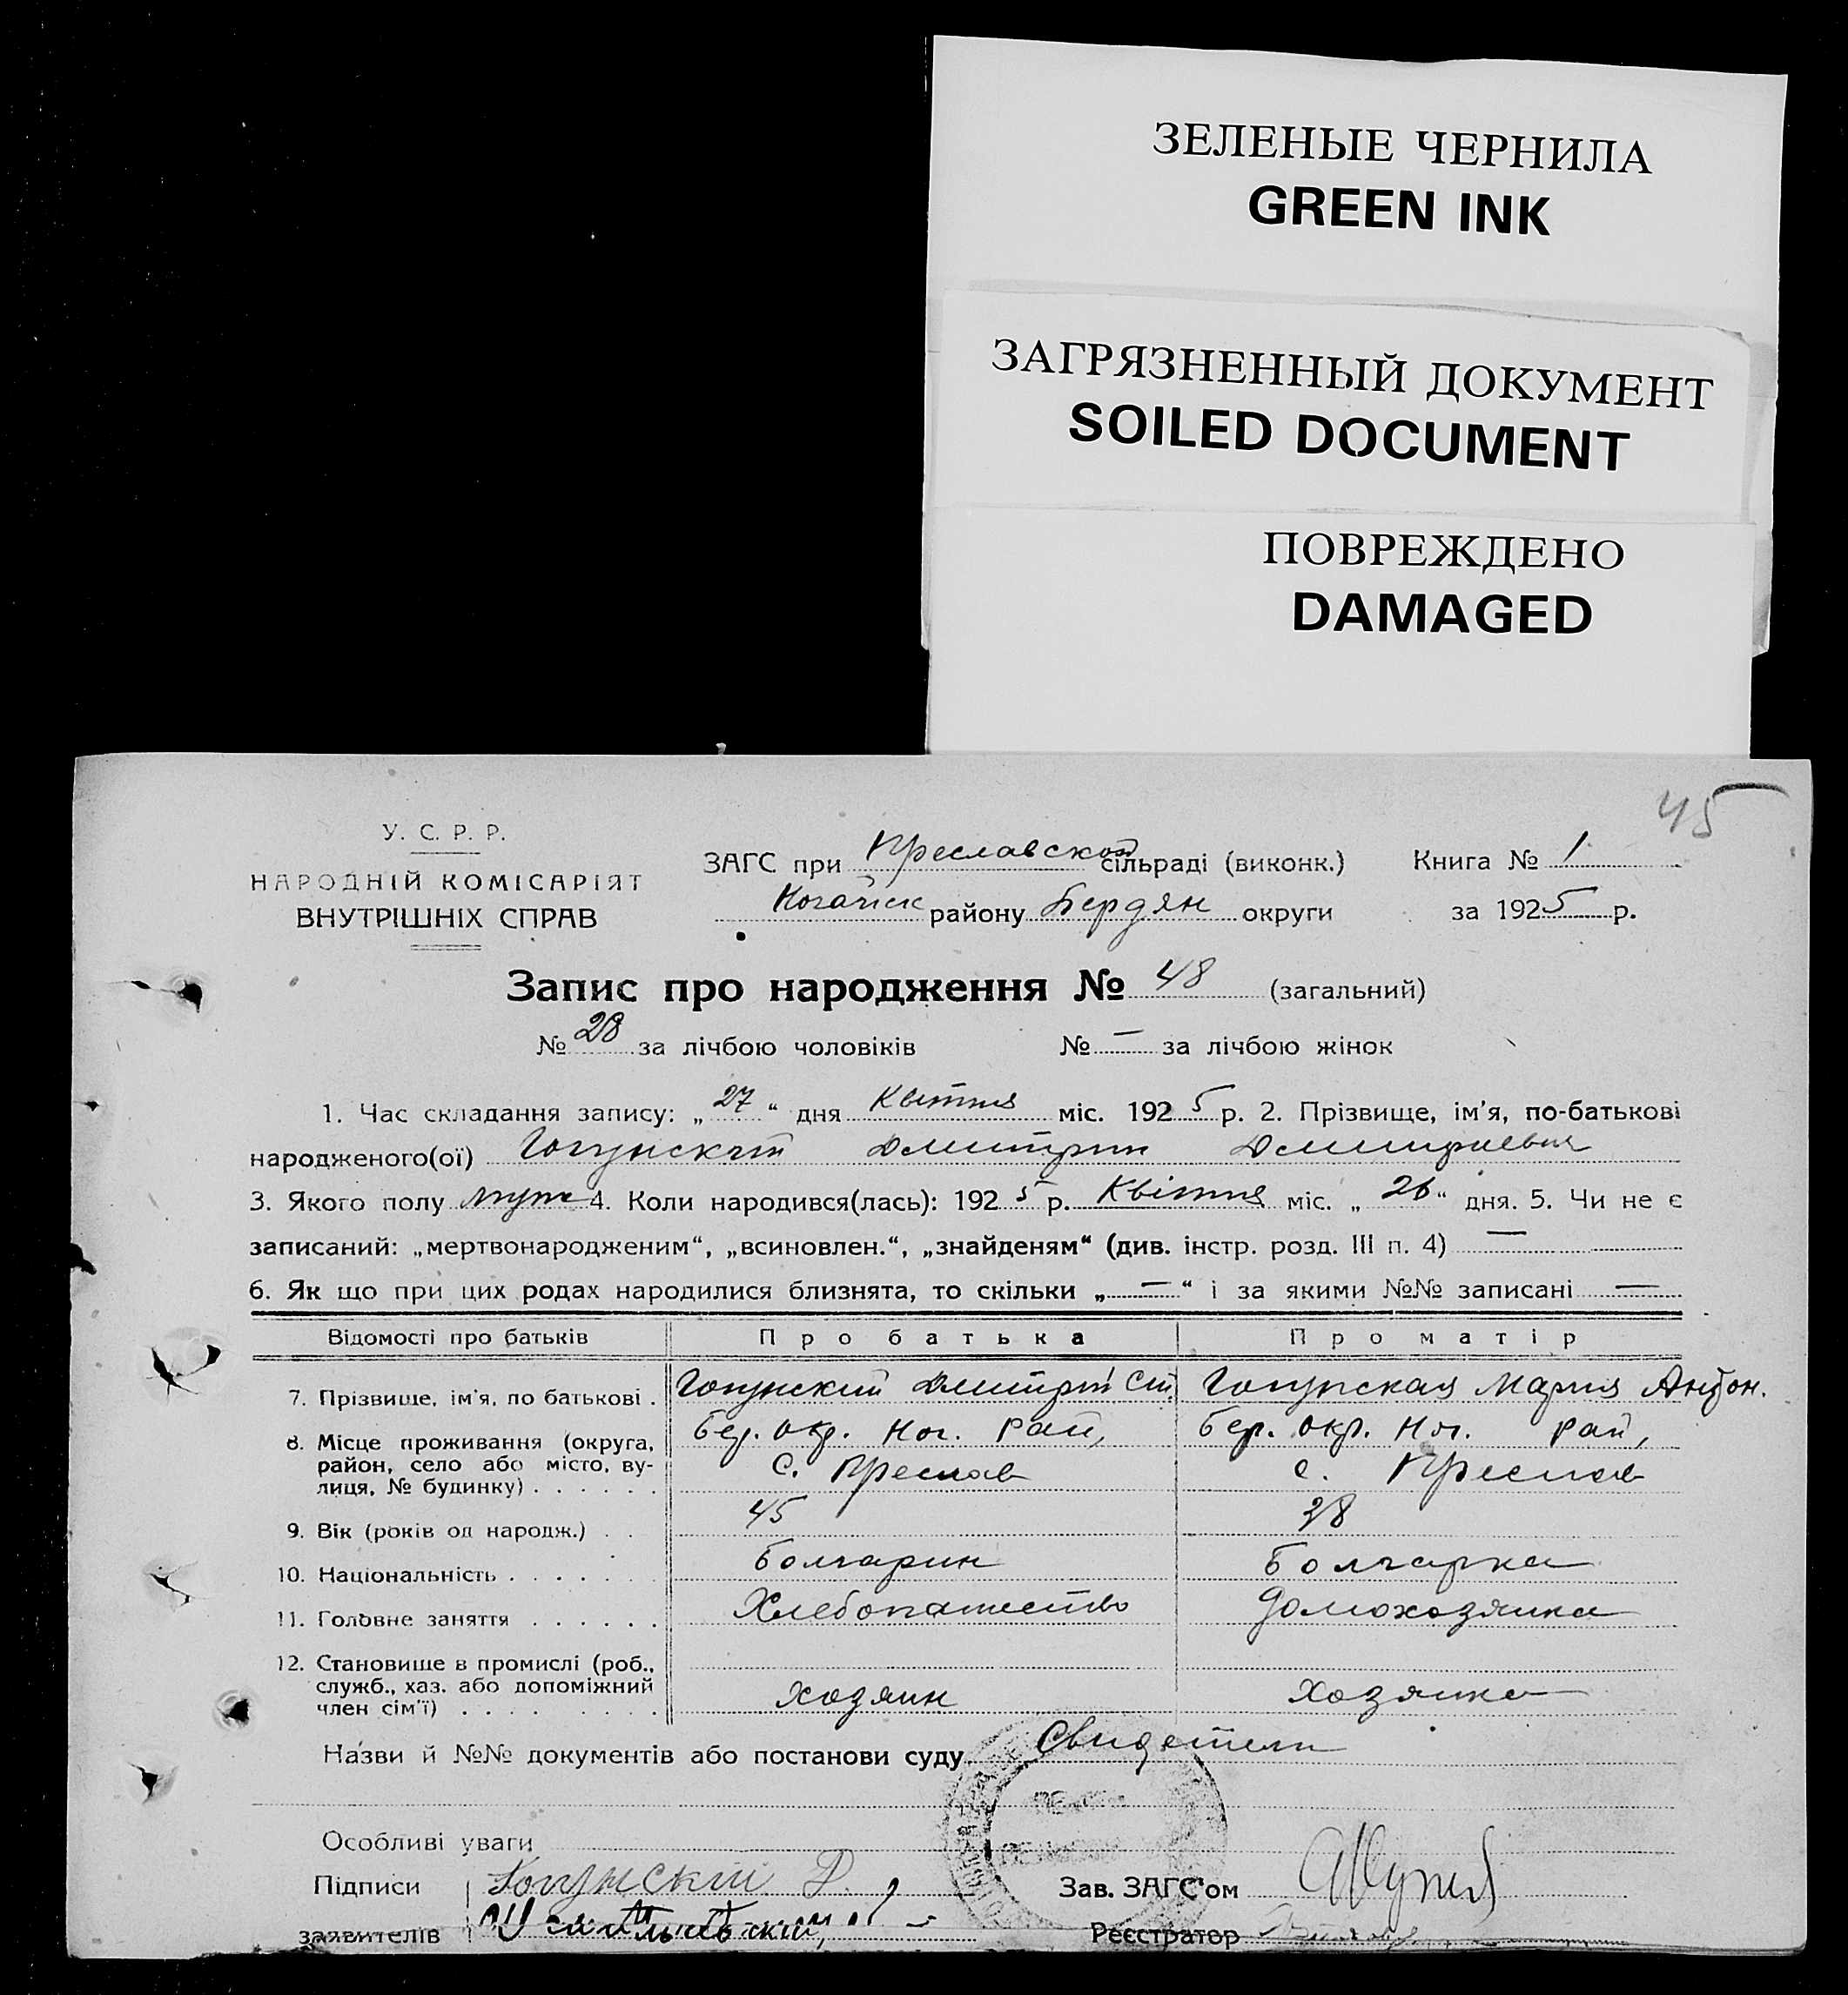 ЗЕЛЕНЫЕ ЧЕРНИЛА
GREEN INK
ЗАГРЯЗНЕННЫЙ ДОКУМЕНТ
SOILED DOCUMENT
ПОВРЕЖДЕНО
DAMAGED
45
У. С. Р. Р.
НАРОДНІЙ КОМІСАРІЯТ
ВНУТРІШНІХ СПРАВ
ЗАГС при Преславской сільраді (виконк.) Книга № 1
Ногайск району Бердян округи за 1925 р.
Запис про народження № 48 (загальний)
№ 28 за лічбою чоловіків № — за лічбою жінок
1. Час складання запису: „27“ дня Квітня міс. 1925 р. 2. Прізвище, ім'я, по-батькові
народженого(ої) Дмитрий Дмитриевич
3. Якого полу муж 4. Коли народився(лась): 1925 р. Квітня міс. „26“ дня. 5. Чи не є
записаний: „мертвонародженим“, „всиновлен.“, „знайденям“ (див. інстр. розд. III п. 4) —
6. Як що при цих родах народилися близнята, то скільки „—“ і за якими №№ записані —
Відомості про батьків Про батька Про матір
7. Прізвище, ім'я, по батькові . Дмитрий Ст. Мария Антон.
8. Місце проживання (округа, Бер. окр. Ног. рай, Бер. окр. Ног. рай,
район, село або місто, ву- с. Преслав с. Преслав
лиця, № будинку) . . . . . .
9. Вік (років од народж.) . . 45 38
10. Національність . . . . . . Болгарин Болгарка
11. Головне заняття . . . . . . Хлебопашество Домохозяйка
12. Становище в промислі (роб.,
служб., хаз. або допоміжний
член сім'ї) . . . . . . . . . Хозяин Хозяйка
Назви й №№ документів або постанови суду Свидетели
Особливі уваги
Підписи Д. Зав. ЗАГС'ом
заявителів Реєстратор